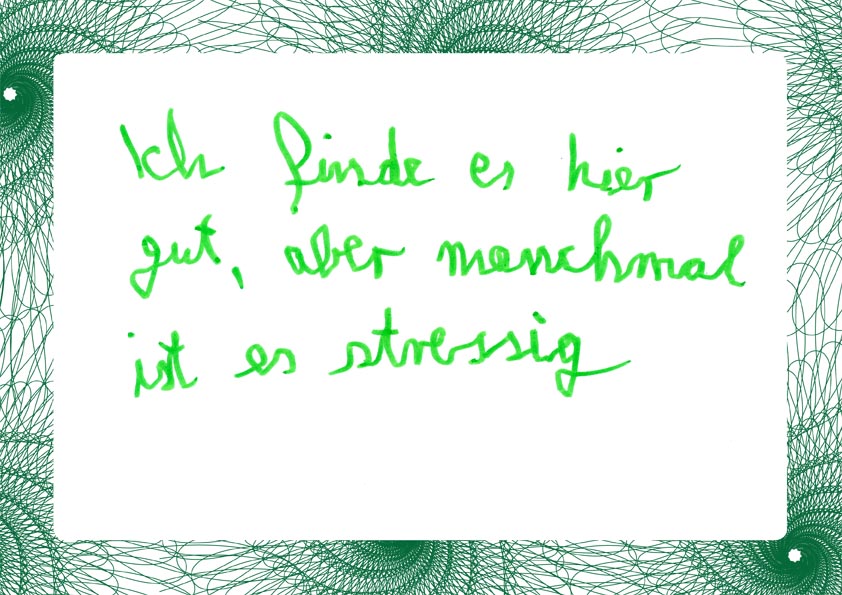 Ich finde es hier
gut, aber manchmal
ist es stressig